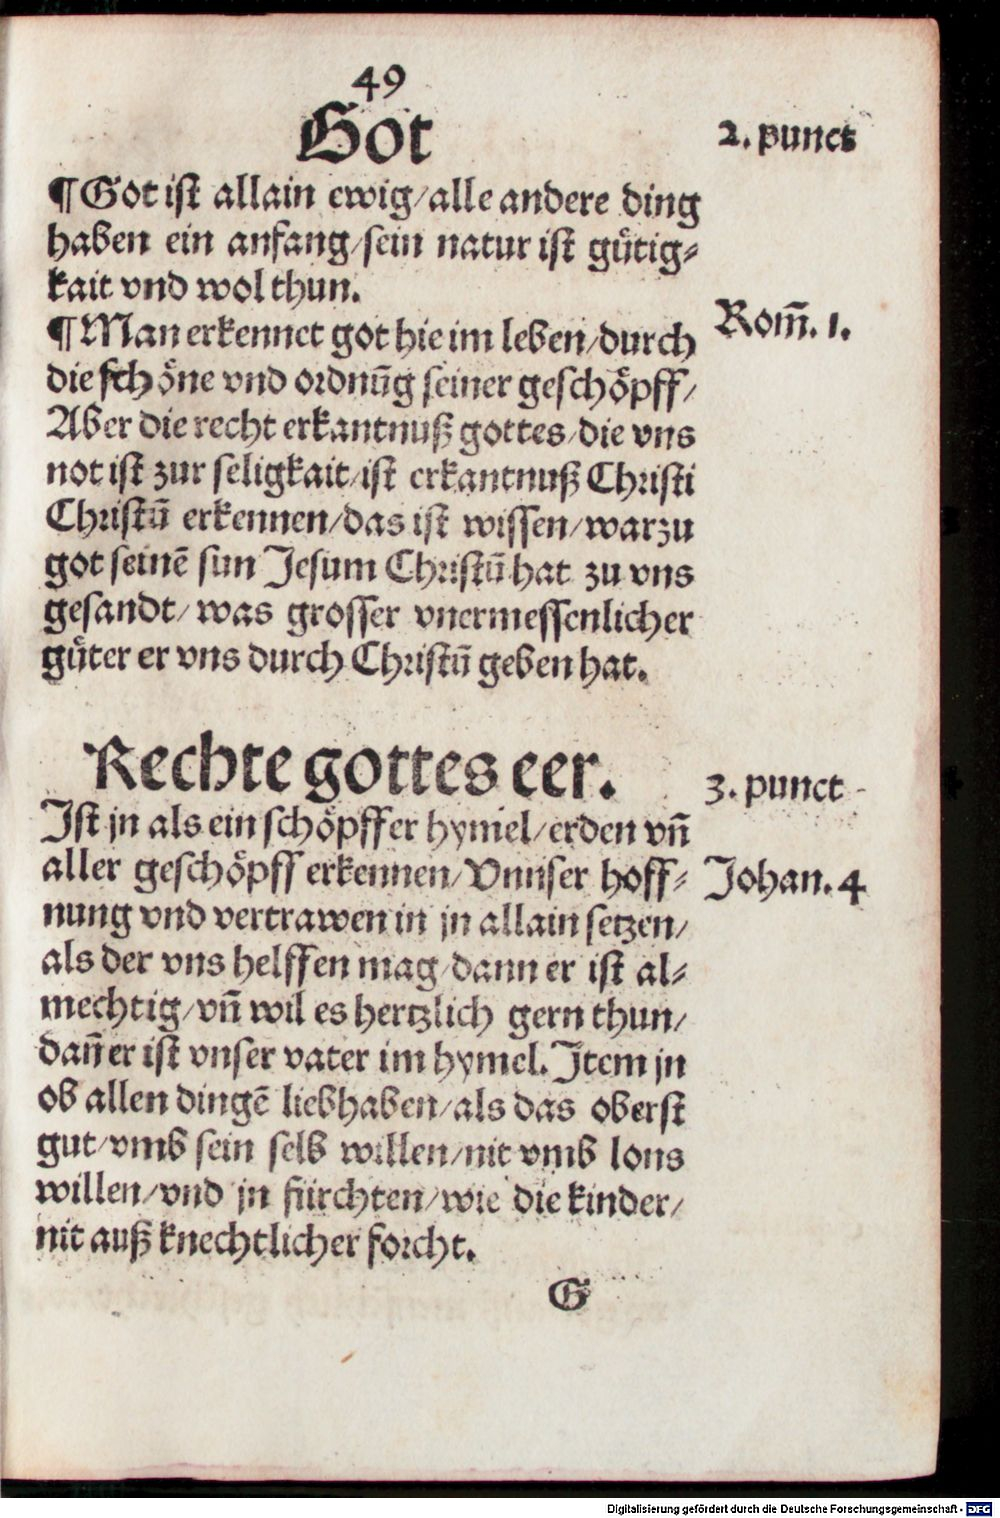 49
Got
2. punct
¶Got ist allain ewig/alle andere ding
haben ein anfang/sein natur ist gütig⸗
kait vnd wol thun.
¶Man erkennet got hie im leben/durch
Rom̃. 1.
die schöne vnd ordnũg seiner geschöpff/
Aber die recht erkantnuß gottes/die vns
not ist zur seligkait/ist erkantnuß Christi
Christũ erkennen/das ist wissen/warzu
got seinẽ sun Jesum Christũ hat zu vns
gesandt/was grosser vnermessenlicher
güter er vns durch Christũ geben hat.
Rechte gottes eer.
3. punct
Ist jn als ein schöpffer hymel/erden vñ
aller geschöpff erkennen/Vnnser hoff⸗
Johan. 4
nung vnd vertrawen in jn allain setzen/
als der vns helffen mag/dann er ist al⸗
mechtig/vñ wil es hertzlich gern thun/
dañ er ist vnser vater im hymel. Item jn
ob allen dingẽ liebhaben/als das oberst
gut/vmb sein selb willen/nit vmb lons
willen/vnd jn fürchten/wie die kinder/
nit auß knechtlicher forcht.
G
Digitalisierung gefördert durch die Deutsche Forschungsgemeinschaft - DFG